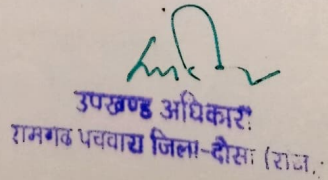 उपखण्ड अधिकारी
रामगढ पचवारा जिला-दौसा (राज.